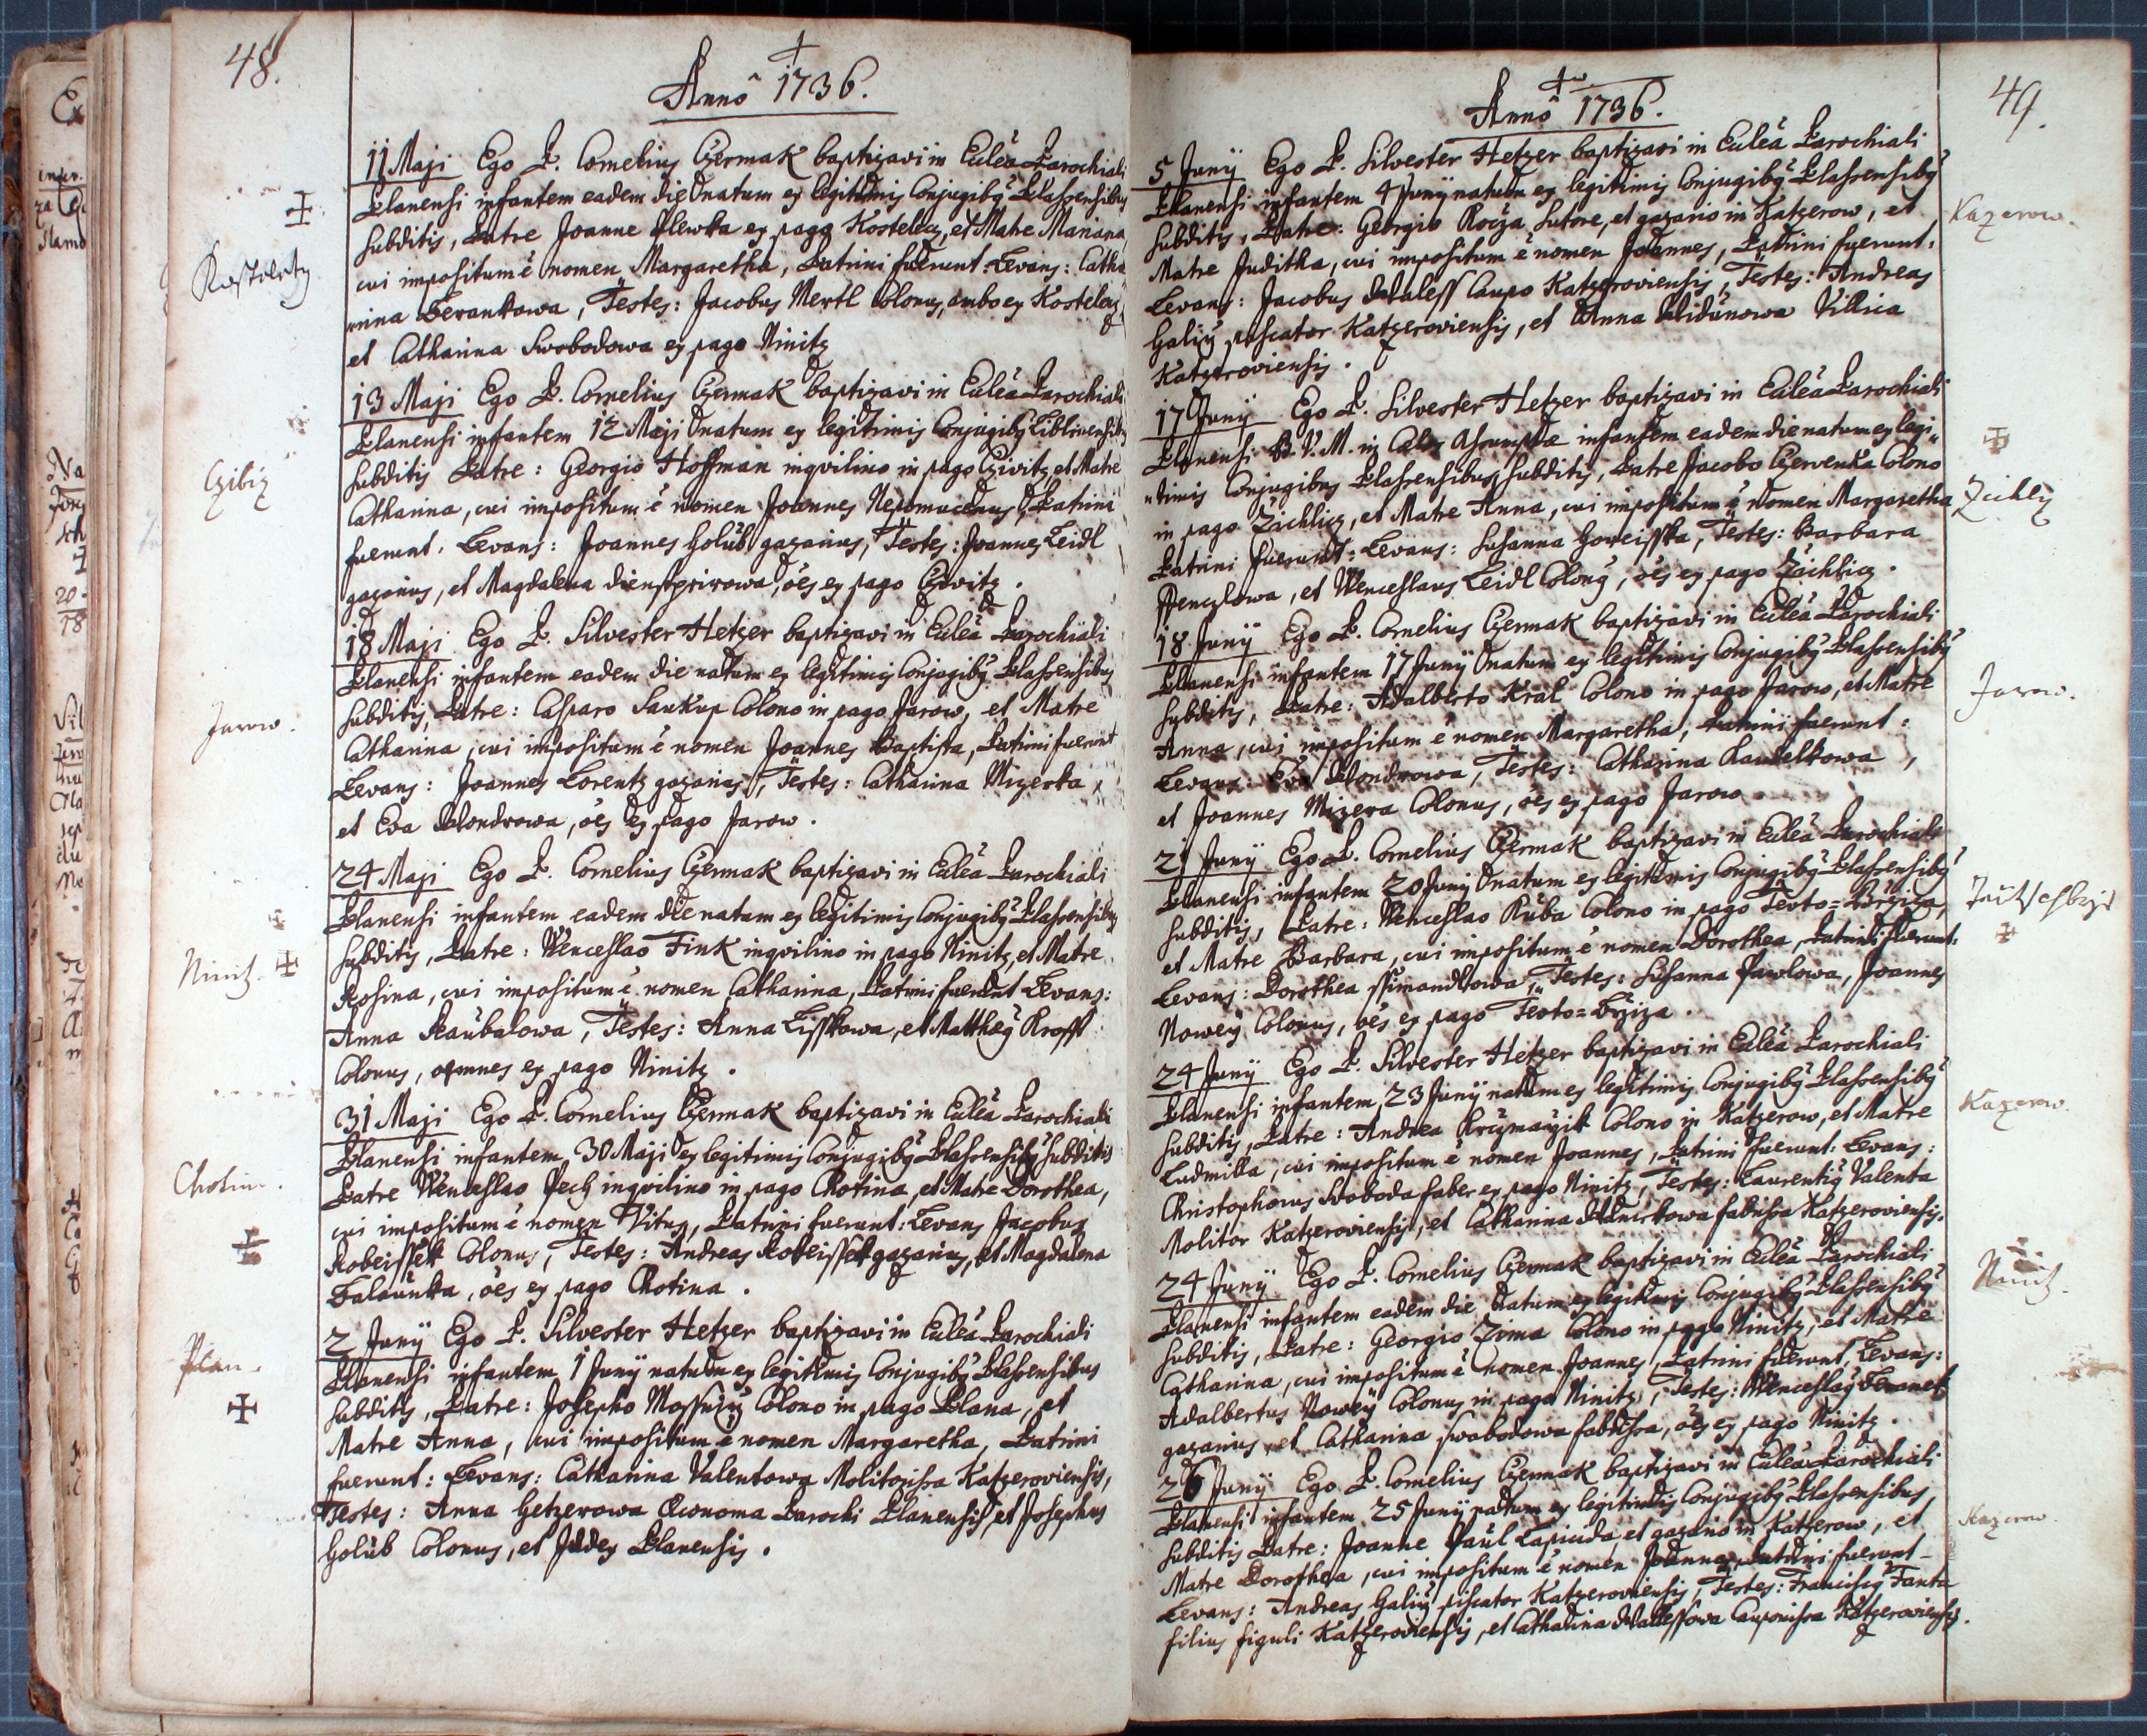 48.
Anno 1736.
11 Maji Ego P. Cornelius Czermak baptizavi in Eccleâ Parochiali
Planensi infantem eadem die natum ex legitimis Conjugibg Plassensibus
subditis, Patre Joanne Plewka ex pago Kostelecz, et Matre Mariana
cui impositum ë nomen Margaretha, Patrini fuerunt: Levans: Catha
Kostelecz
rina Berankowa, Testes: Jacobus Mertl Colonus, ambo ex Kostelecz
et Catharina Swobodowa ex pago Ninitz
13 Maji Ego P. Cornelius Czermak baptizavi in Eccleâ Parochiali
Planensi infantem 12 Maji natum ex legitimis Conjugibg Liblinensibg
subditis Patre: Georgio Hoffman inqvilino in pago Czivitz, et Matre
Czibiz
Catharina, cui impositum ë nomen Joannes Nepomucenus, Patrini
fuerunt. Levans: Joannes Holub gazarius, Testes: Joannes Leidl
gazarius, et Magdalena dienstpirowa, öes ex pago Czivitz.
18 Maji Ego P. Silvester Hetzer baptizavi in Eccleâ Parochiali
Planensi infantem eadem die natum ex legitimis Conjugibg Plassensibus
subditis, Patre: Casparo Saukup Colono in pago Jarow, et Matre
Jarow.
Catharina, cui impositum ë nomen Joannes Baptista, Patrini fuerunt
Levans: Joannes Lorentz gazarius, Testes: Catharina Mizerka,
et Eva Wondrowa, öes ex pago Jarow.
24 Maji Ego P. Cornelius Czermak baptizavi in Eccleâ Parochiali
Planensi infantem eadem die natam ex legitimis Conjugibg Plassensibus
subditis, Patre: Wenceslao Fink inqvilino in pago Ninitz, et Matre
Ninitz.
Rosina, cui impositum ë nomen Catharina, Patrini fuerunt Levans:
Anna Kaubalowa, Testes: Anna Lisskowa, et Matthæg Krofft
Colonus, omnes ex pago Ninitz.
31 Maji Ego P. Cornelius Czermak baptizavi in Eccleâ Parochiali
Planensi infantem 30 Maji ex legitimis Conjugibg Plassensibg subditis
Chotin.
Patre Wenceslao Pech inqvilino in pago Chotina, et Matre Dorothea,
cui impositum ë nomen Vitus, Patrini fuerunt: Levans Jacobus
Kobeissek Colonus, Testes: Andreas Kobeissek gazarius, et Magdalena
Falaunka, öes ex pago Chotina.
2 Junÿ Ego P. Silvester Hetzer baptizavi in Eccleâ Parochiali
Plan.
Planensi infantem 1 Junÿ natum ex legitimis Conjugibg Plassensibus
subditis, Patre: Josepho Colono in pago Plana, et
Matre Anna, cui impositum ë nomen Margaretha, Patrini
fuerunt: Levans: Catharina Valentowa Molitorissa Katzeroviensis,
Testes: Anna Hetzerowa Œconoma Parochi Planensis, et Josephus
Holub Colonus, et Judex Planensis.
49.
Anno 1736.
5 Junÿ Ego P. Silvester Hetzer baptizavi in Eccleâ Parochiali
Planensi infantem 4 Junÿ natum ex legitimis Conjugibg Plassensibg
Kazerow.
subditis, Patre: Georgio Rocza, Sutore, et gazario in Katzerow, et
Matre Juditha, cui impositum ë nomen Joannes, Patrini fuerunt:
Levans: Jacobus Waless Caupo Katzeroviensis, Testes: Andreas
Galig piscator Katzeroviensis, et Anna Widunowa Villica
Katzeroviensis.
17 Junÿ Ego P. Silvester Hetzer baptizavi in Eccleâ Parochiali
Planensi B. V. M. in Cælos Assumptæ infantem eadem die natum ex legi
timis Conjugibus Plassensibus subditis, Patre Jacobo Czervenka Colono
Zechliz
in pago Zachlicz, et Matre Anna, cui impositum ë nomen Margaretha
Patrini fuerunt: Levans: Susanna Horeisska, Testes: Barbara
Henczlowa, et Wenceslaus Leidl Colong, öes ex pago Zachlicz.
18 Junÿ Ego P. Cornelius Czermak baptizavi in Eccleâ Parochiali
Planensi infantem 17 Junÿ natum ex legitimis Conjugibg Plassensibg
Jarow.
subditis, Patre: Adalberto Kral Colono in pago Jarow, et Matre
Anna, cui impositum ë nomen Margaretha, Patrini fuerunt:
Levans: Eva Wondrowa, Testes: Catharina Kaudelkowa,
et Joannes Mizera Colonus, öes ex pago Jarow.
21 Junÿ Ego P. Cornelius Czermak baptizavi in Eccleâ Parochiali
Planensi infantem 20 Junÿ natum ex legitimis Conjugibg Plassensibg
subditis, Patre: Wenceslao Kuba Colono in pago Teuto=Brziza,
et Matre Barbara, cui impositum ë nomen Dorothea, Patrini fuerunt:
Levans: Dorothea ssimandlowa, Testes: Susanna Pawlowa, Joannes
Nowey Colonus, öes ex pago Teuto=Brziza.
24 Junÿ Ego P. Silvester Hetzer baptizavi in Eccleâ Parochiali
Planensi infantem 23 Junÿ natum ex legitimis Conjugibg Plassensibg
Kazerow.
subditis, Patre: Andrea Krczmarzik Colono in Katzerow, et Matre
Ludmilla, cui impositum ë nomen Joannes, Patrini fuerunt: Levans:
Christophorus Swoboda faber ex pago Ninitz, Testes: Laurentig Valenta
Molitor Katzeroviensis, et Catharina fabrissa Katzeroviensis.
24 Junÿ Ego P. Cornelius Czermak baptizavi in Eccleâ Parochiali
Ninitz.
Planensi infantem eadem die natum ex legitimis Conjugibg Plassensibg
subditis, Patre: Georgio Zima Colono in pago Ninitz, et Matre
Catharina, cui impositum ë nomen Joannes, Patrini fuerunt, Levans:
Adalbertus Nowey Colonus in pago Ninitz, Testes: Wenceslag Beranek
gazarius, et Catharina swobodowa fabrissa, öes ex pago Ninitz.
26 Junÿ Ego P. Cornelius Czermak baptizavi in Eccleâ Parochiali
Planensi infantem 25 Junÿ natum ex legitimis Conjugibg Plassensibus
Kazerow.
subditis Patre: Joanne Paul Lapicida, et gazario in Katzerow, et
Matre Dorothea, cui impositum ë nomen Joannes, Patrini fuerunt
Levans: Andreas Galig piscator Katzeroviensis, Testes: Franciscg Fanta
filius figuli Katzeroviensis, et Catharina Walessowa Cauponissa Katzeroviensis.